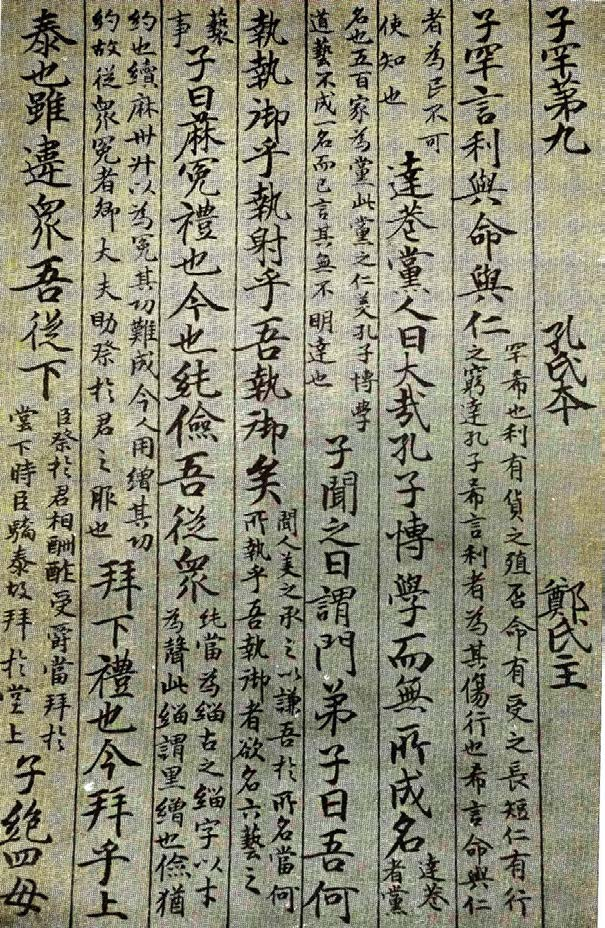 子罕第九　孔氏本　鄭氏主
子罕言利與命與仁
罕希也利有貨之殖否命有受之長短仁有行
之窮達孔子希言利者為其傷行也希言命與仁
者為民不可
使知也
達巷黨人曰大哉孔子博學而無所成名
達巷
者黨
名也五百家為黨此黨之仁美孔子博學
道藝不成一名而已言其無不明達也
子聞之曰謂門弟子曰吾何
執執御乎執射乎吾執御矣
聞人美之承之以謙吾於所名當何
所執乎吾執御者欲名六藝之
藝
事
子曰麻冕禮也今也純儉吾從眾
純當為緇古之緇字以才
為聲此緇謂黑繒也儉猶
約也續麻卅升以為冕其功難成今人用繒其功
約故從眾冕者卿大夫助祭於君之服也
拜下禮也今拜乎上
泰也雖違眾吾從下
臣祭於君相酬酢受爵當拜於
堂下時臣驕泰故拜於堂上
子絕四毋